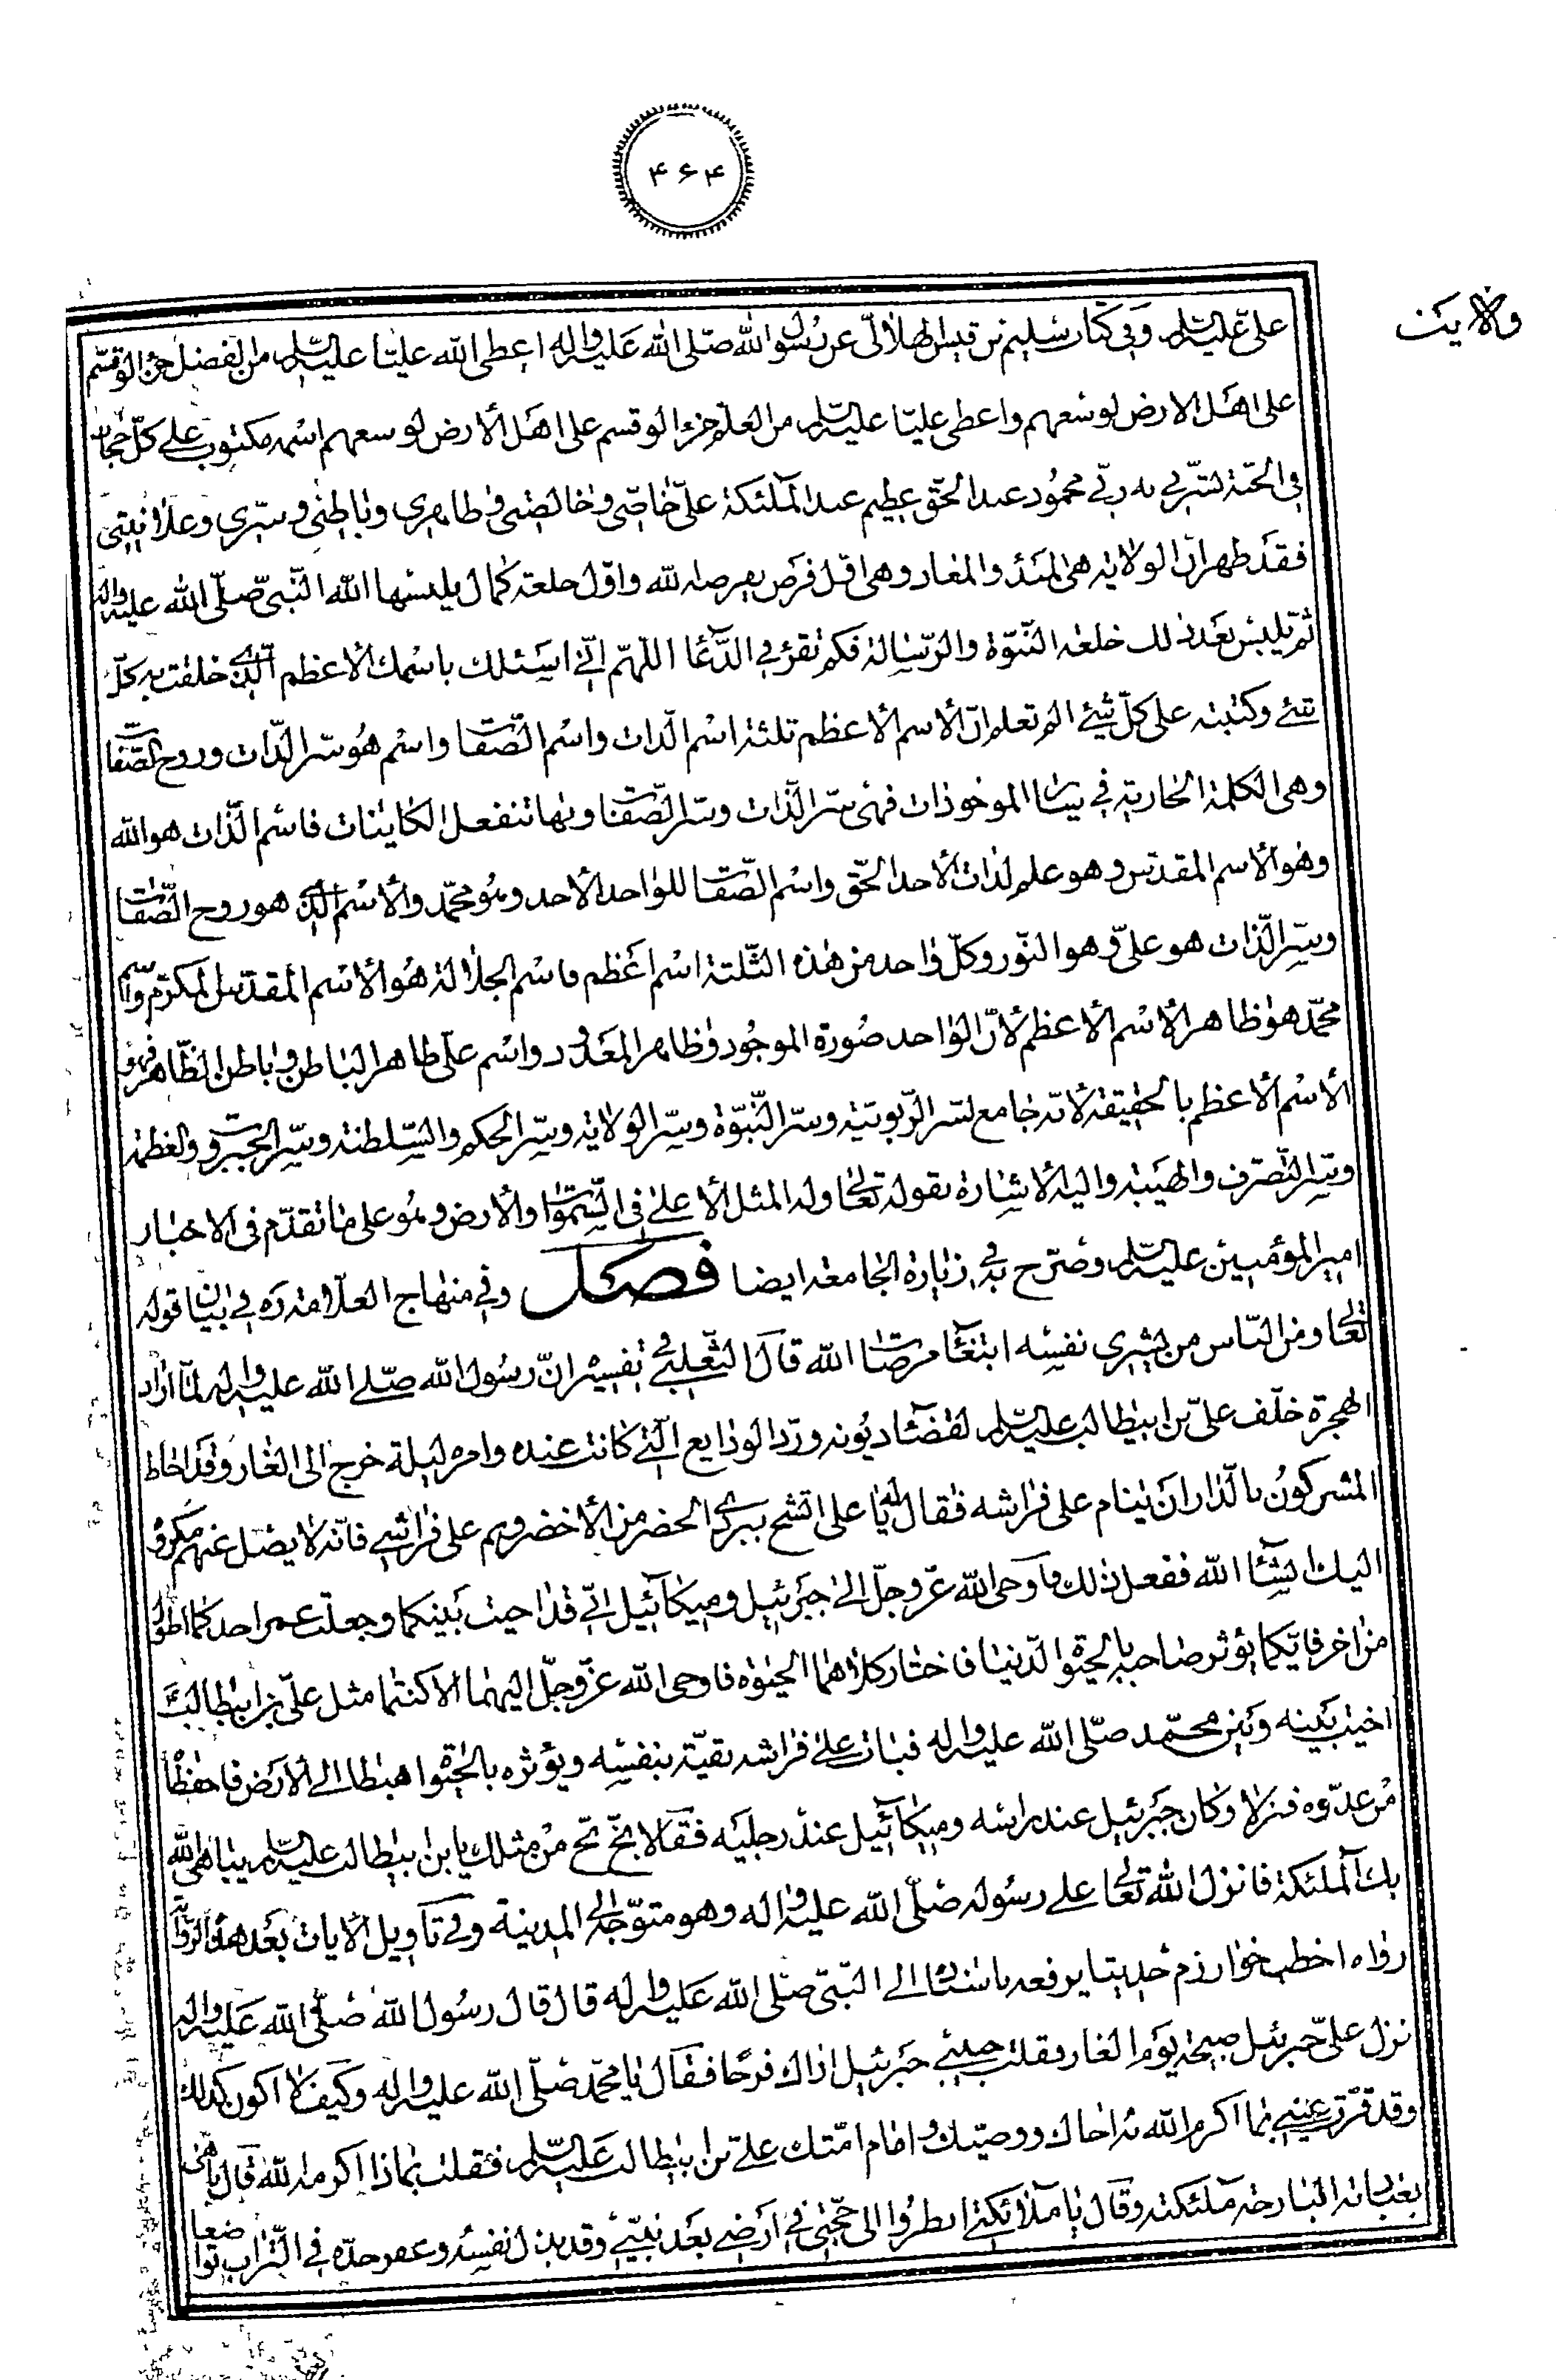 ۴۶۴
ولایت
علیّ علیه السّلم وفی کتاب سلیم بن قیس الهلالیّ عن رسول الله صلّی الله علیه واله اعطی الله علیّا علیه السّلم من الفضل جزءا لو قسّم
علی اهل الارض لوسعهم واعطی علیّا علیه السّلم من العلم جزءا لو قسم علی اهل الارض لوسعهم اسمه مکتوب علی کلّ حجاب
فی الجنّة بشّرنی به ربّی محمود عند الحقّ عظیم عند الملئکة علیّ خاصّی وخالصتی وظاهری وباطنی وسرّی وعلانیتی
فقد ظهر انّ الولایة هی المبدء والمعاد وهی اوّل فرض فرضه الله واوّل خلعة کمال یلبسها الله النّبیّ صلّی الله علیه واله
ثمّ یلبس بعد ذلک خلعة النّبوّة والرّسالة فکم تقرء فی الدّعا اللهمّ انّی اسئلک باسمک الاعظم الّذی خلقت به کلّ
شئ وکتبته علی کلّ شئ الم تعلم انّ الاسم الاعظم ثلثة اسم الذّات واسم الصّفات واسم هو سرّ الذّات وروح الصّفات
وهی الکلمة الجاریة فی سایر الموجودات فهی سرّ الذّات وسرّ الصّفات وبها تنفعل الکاینات فاسم الذّات هو الله
وهو الاسم المقدّس وهو علم لذات الاحد الحقّ واسم الصّفات للواحد الاحد وهو محمّد والاسم الّذی هو روح الصّفات
وسرّ الذّات هو علیّ وهو النّور وکلّ واحد من هذه الثّلثة اسم اعظم فاسم الجلالة هو الاسم المقدّس المکرّم واسم
محمّد هو ظاهر الاسم الاعظم لانّ الواحد صورة الموجود وظاهر المعدود واسم علیّ ظاهر الباطن وباطن الظّاهر فهو
الاسم الاعظم بالحقیقة لانّه جامع لسرّ الرّبوبیّة وسرّ النّبوّة وسرّ الولایة وسرّ الحکم والسّلطنة وسرّ الجبروت والعظمة
وسرّ التّصرّف والهیبة والیه الاشارة بقوله تعالی وله المثل الاعلی فی السّموات والارض وهو علی ما تقدّم فی الاخبار
امیر المؤمنین علیه السّلم وصرّح به فی زیارة الجامعة ایضا فصل وفی منهاج العلّامة ره فی بیان قوله
تعالی ومن النّاس من یشری نفسه ابتغآء مرضات الله قال الثّعلبی فی تفسیره انّ رسول الله صلّی الله علیه واله لمّا اراد
الهجرة خلّف علیّ بن ابیطالب علیه السّلم لقضآء دیونه وردّ الودایع الّتی کانت عنده وامره لیلة خرج الی الغار وقد احاط
المشرکون بالدّار ان ینام علی فراشه فقال له یا علی اتّشح ببردی الحضرمی الاخضر ونم علی فراشی فانّه لا یصل منهم مکروه
الیک انشآء الله ففعل ذلک فاوحی الله عزّ وجلّ الی جبرئیل ومیکآئیل انّی قد اخیت بینکما وجعلت عمر احدکما اطول
من اخر فایّکما یؤثر صاحبه بالحیوة الدّنیا فاختار کلاهما الحیوة فاوحی الله عزّ وجلّ الیهما الا کنتما مثل علیّ بن ابیطالب
اخیت بینه وبین محمّد صلّی الله علیه واله فبات علی فراشه یقیه بنفسه ویؤثره بالحیوة اهبطا الی الارض فاحفظاه
من عدوّه فنزلا وکان جبرئیل عند راسه ومیکآئیل عند رجلیه فقالا بخّ بخّ من مثلک یا بن ابیطالب علیه السّلم یباهی الله
بک الملئکة فانزل الله تعالی علی رسوله صلّی الله علیه واله وهو متوجّه الی المدینة وفی تآویل الایات بعد هذه الرّوایة
رواه اخطب خوارزم حدیثا یرفعه باسناده الی النّبیّ صلّی الله علیه واله قال قال رسول الله صلّی الله علیه واله
نزل علیّ جبرئیل صبیحة یوم الغار فقلت حبیبی جبرئیل اراک فرحا فقال یا محمّد صلّی الله علیه واله وکیف لا اکون کذلک
وقد قرّت عینی بما اکرم الله به اخاک ووصیّک وامام امّتک علیّ بن ابیطالب علیه السّلم فقلت بماذا اکرمه الله قال باهی
بعبادته البارحة ملئکته وقال یا ملآئکتی انظروا الی حجّتی فی ارضی بعد نبیّی وقد بذل نفسه وعفر خدّه فی التّراب تواضعا